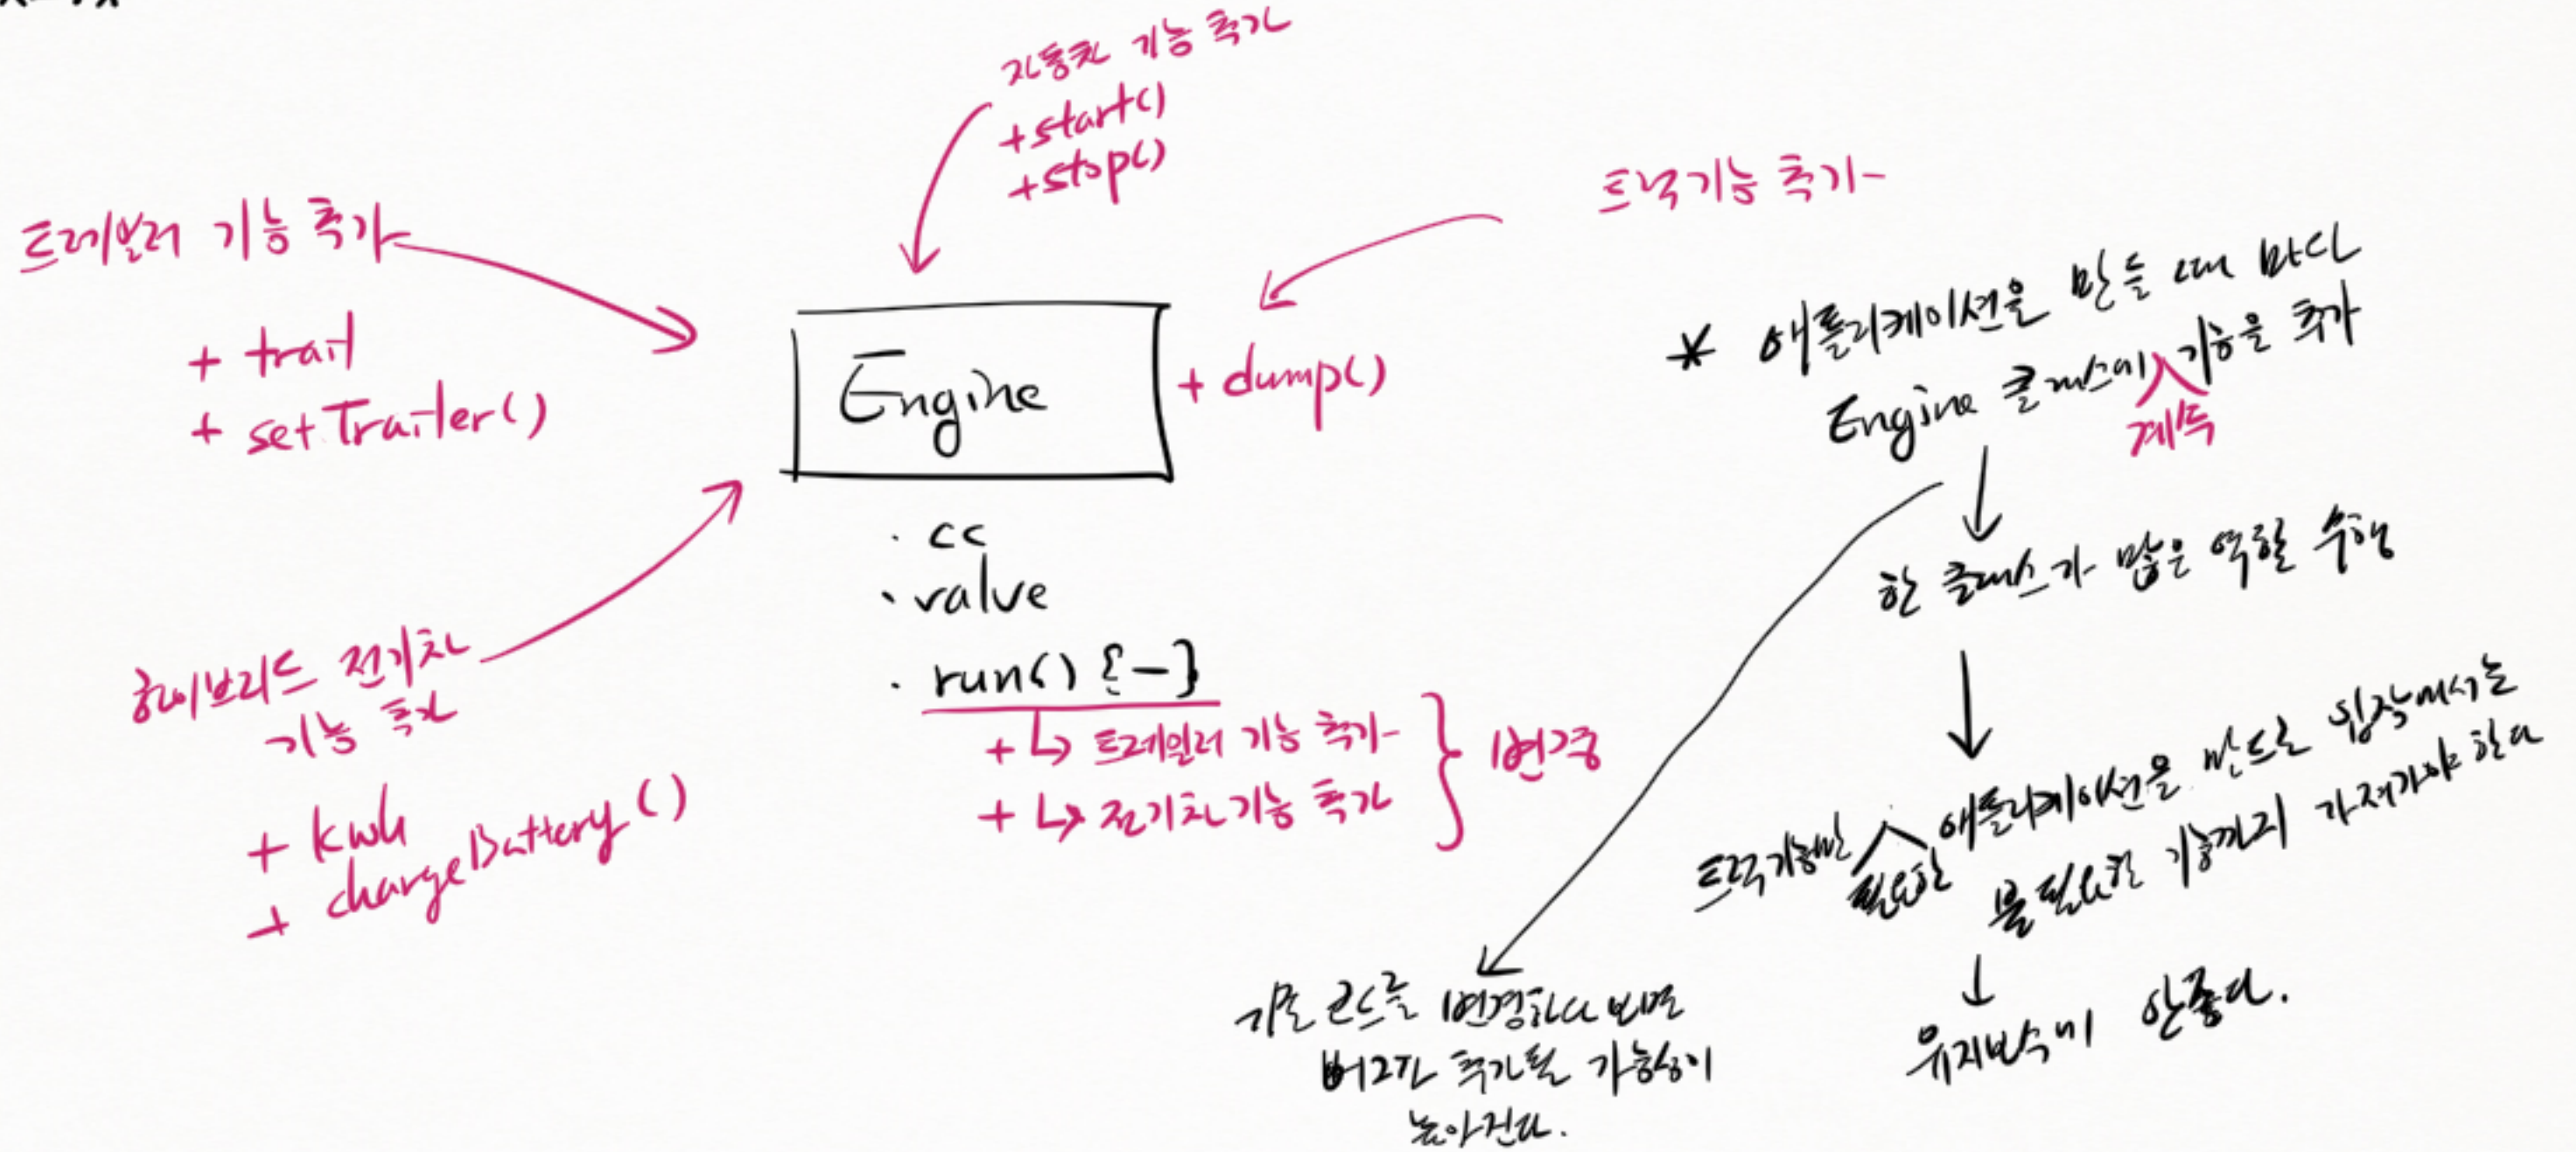 자동차 기능 추가
+start()
+stop()
트레일러 기능 추가
+ trail
+ setTrailer()
트럭기능 추가
+ dump()
Engine
· cc
· valve
· run() {-}
+ ↳ 트레일러 기능 추가
+ ↳ 전기차기능 추가
} 변경
하이브리드 전기차
기능 추가
+ kwh
+ chargeBattery()
* 애플리케이션을 만들 때 마다
Engine 클래스에 계속 기능을 추가
한 클래스가 많은 역할 수행
트럭기능만 필요한 애플리케이션을 만드는 입장에서는
불필요한 기능까지 가져가야 한다
유지보수에 안좋다.
기존 코드를 변경하다 보면
버그가 추가될 가능성이
높아진다.